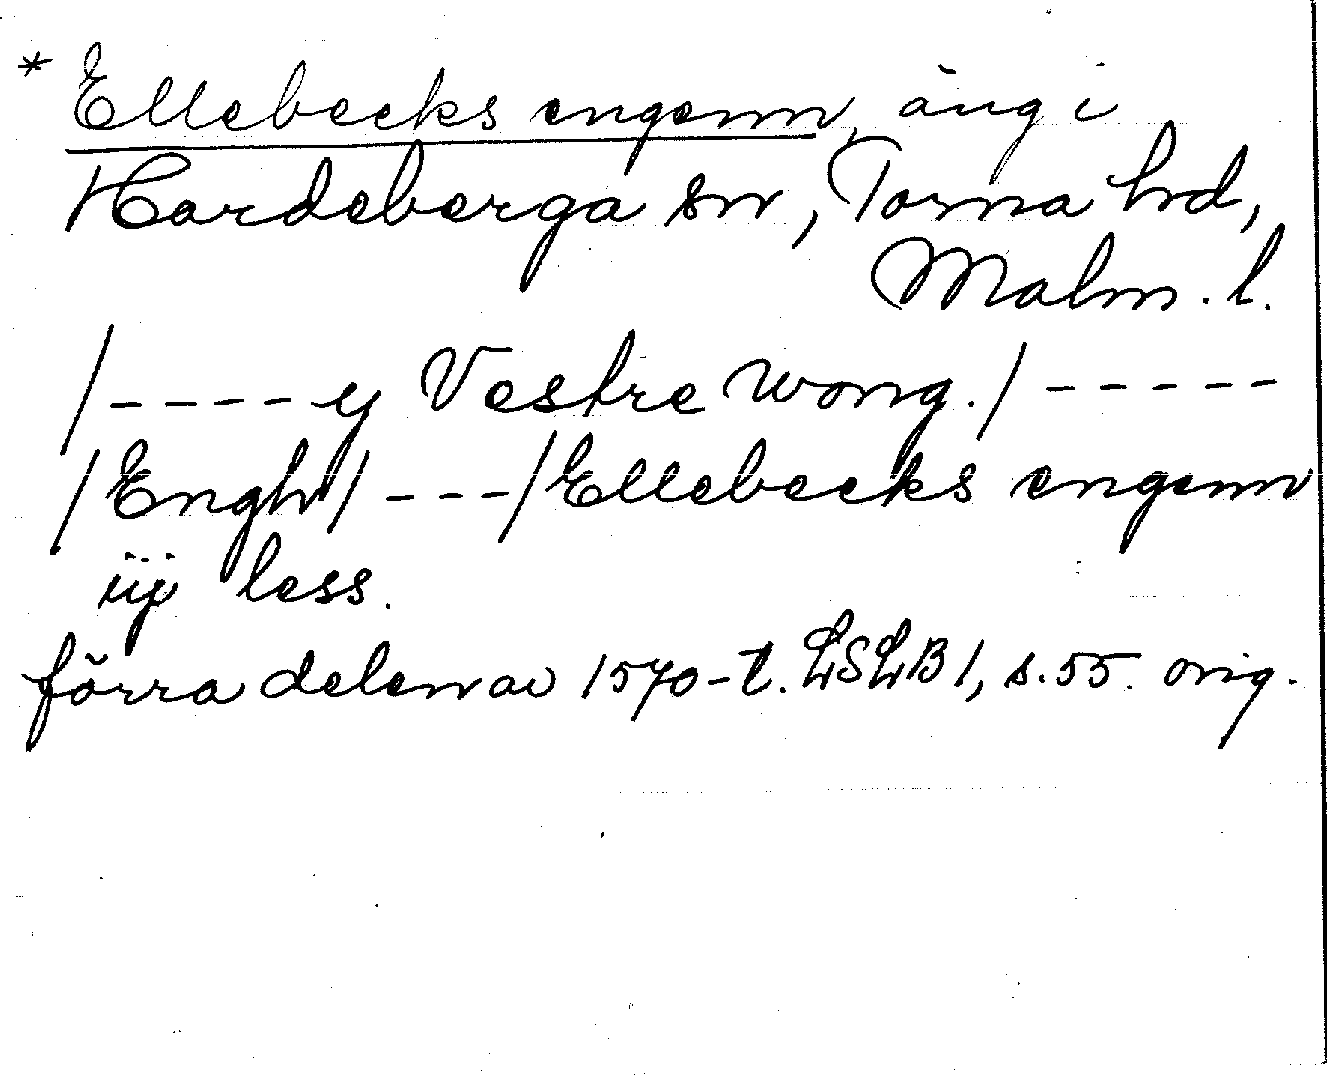 * Ellebecks engenn, äng i
Hardeberga sn, Torna hd,
Malm. l.
/----y Vestre Wong./-----
/Engh/---/Ellebecks engenn
iij less.
förra delen av 1570-t. LSLB 1, s. 55. orig.